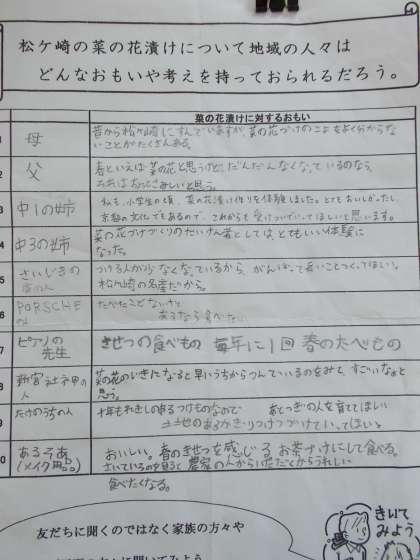 松ケ崎の菜の花漬けについて地域の人々は
どんなおもいや考えを持っておられるだろう。
菜の花漬けに対するおもい
母
昔から松ヶ崎にすんでいますが、菜の花づけのことをよく分からな
いことがたくさんある。
2
父
春といえば菜の花と思うけど、だんだんなくなっているのなら、
さみしいと思う。
3
中1の姉
私も、小学生の頃、菜の花漬け作りを体験しました。とてもおいしかったし、
京都の文化でもあるので、これからも受けついでいってほしいと思います。
4
中3の姉
菜の花づけづくりのたいけん者としては、とてもいい体験に
なった。
5
さいじきの
つける人が少なくなっているから、がんばって長いことつくってほしい。
松ヶ崎の名産だから。
6
PORSCHE
の人
たべたことないけど
あるなら食べたい
7
ピアノの
先生
きせつの食べもの 毎年に1回 春のたべもの
8
新宮社神甲の
人
菜の花のじきになると早いうちからつんでいるのをみて、すごいなぁと
思う。
9
たけのうちの人
十年もれきしのあるつけものなので あとつぎの人を育ててほしい
土地のあるかぎりつけつづけていってほしい
0
あるそあ
おいしい。春のきせつを感じる お茶づけにして食べる。
さいているのを見ると 農家の人からいただくからうれしい
食べたくなる。
友だちに聞くのではなく家族の方々や
きいて
みよう